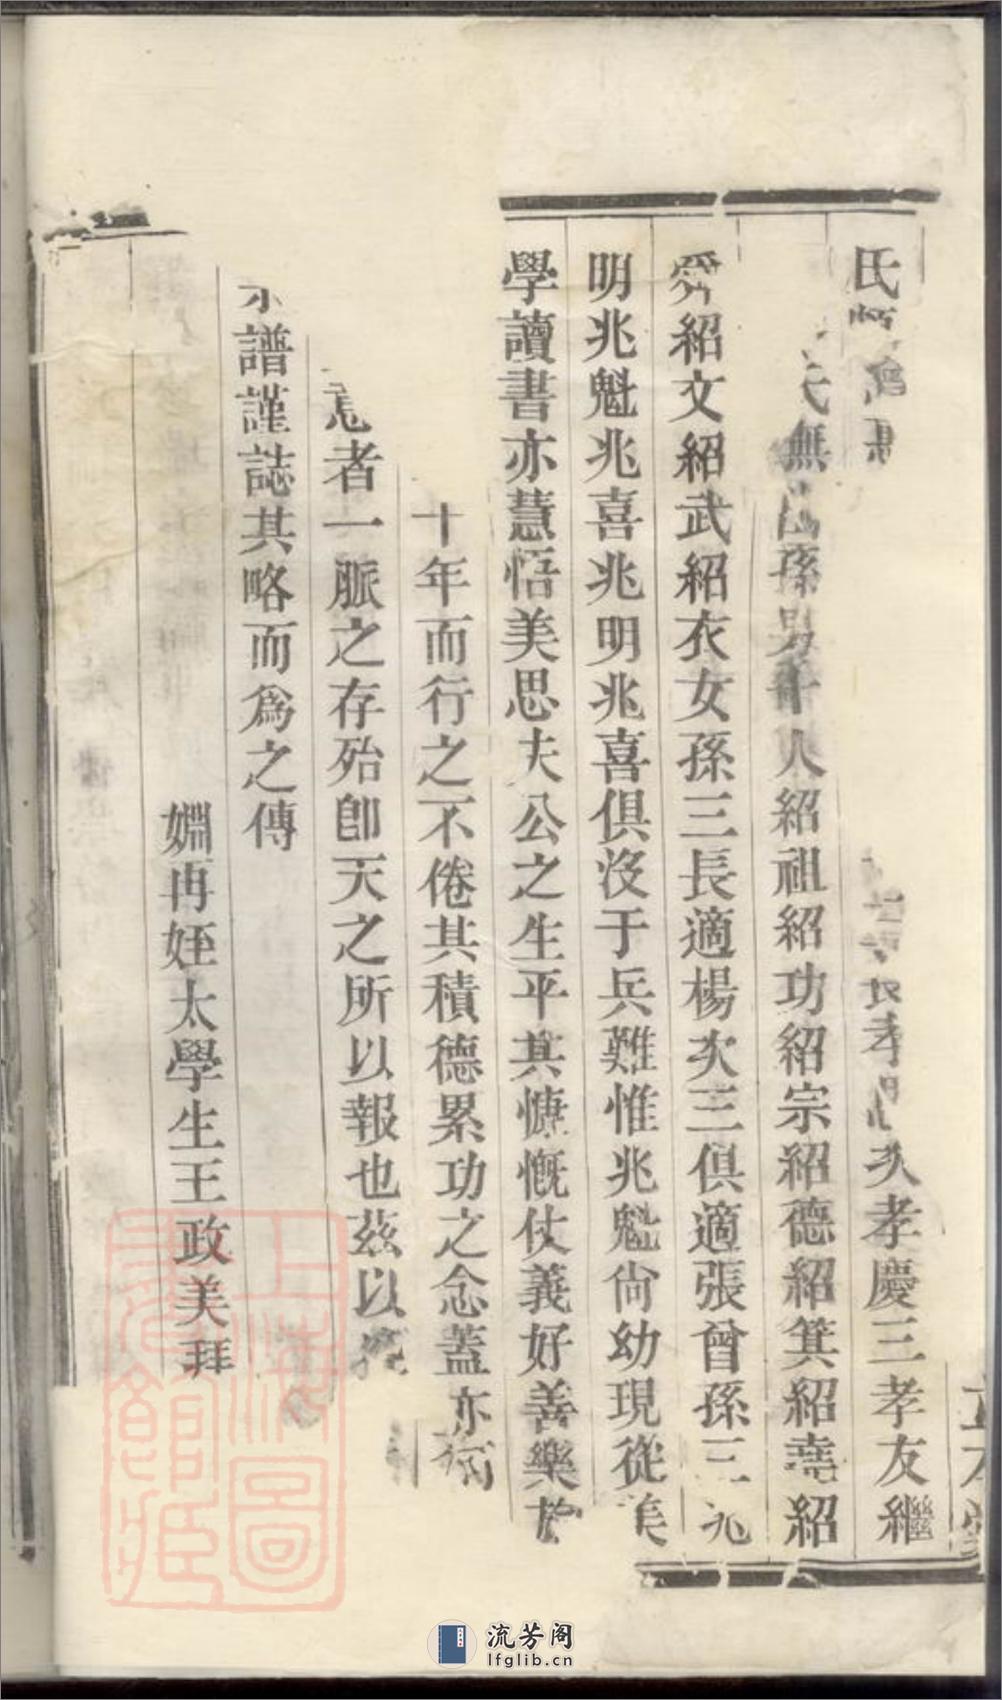 氏長孝次孝慶三孝友繼
氏無孫男十人紹祖紹功紹宗紹德紹箕紹堯紹
舜紹文紹武紹衣女孫三長適楊次三俱適張曾孫三兆
明兆魁兆喜兆明兆喜俱沒于兵難惟兆魁尙幼現從美
學讀書亦慧悟美思夫公之生平其慷慨仗義好善樂
十年而行之不倦其積德累功之念蓋亦
者一脈之存殆卽天之所以報也茲以
譜謹誌其略而爲之傳
姻再姪太學生王政美拜
上海圖書館藏
流芳阁
lfglib.cn